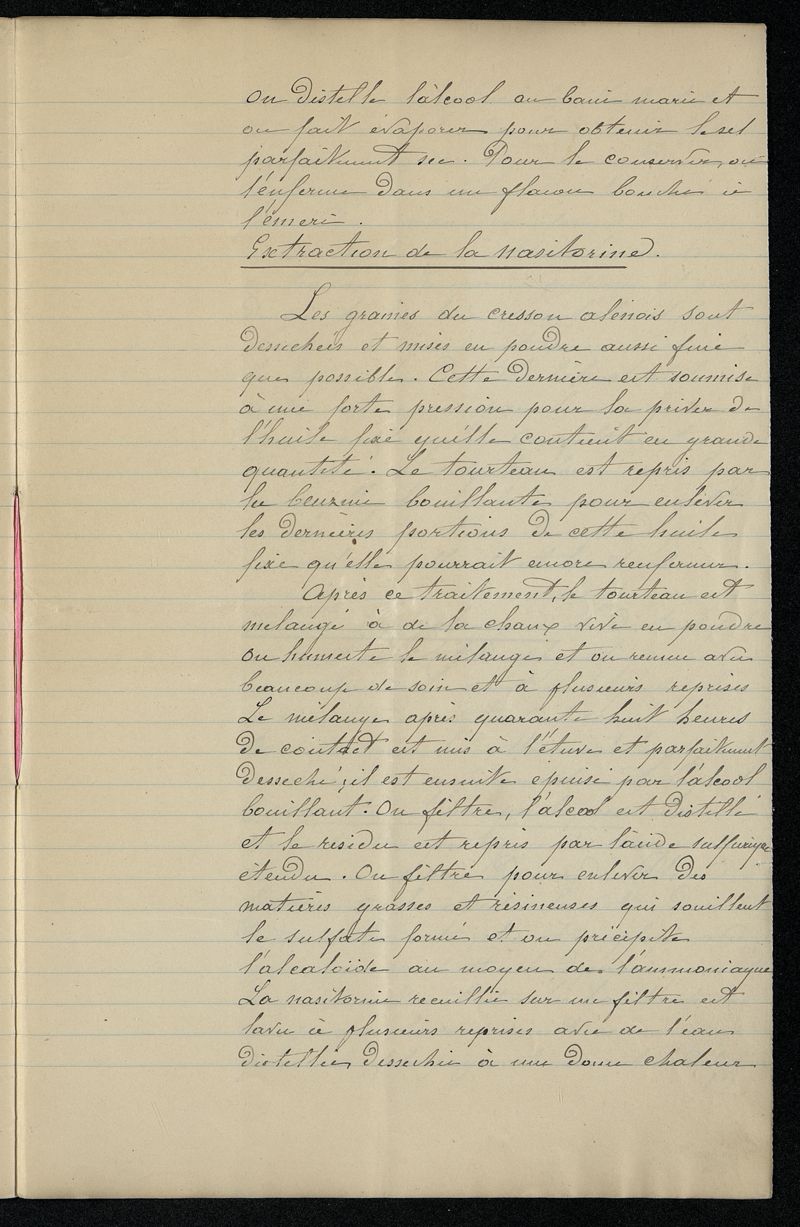 On distille l'alcool au bain marie et
on fait évaporer pour obtenir le sel
parfaitement sec. Pour le conserver, on
l'enferme dans un flacon bouché à
l'émeri.
Extraction de la nasitorine.
Les graines du cresson alénois sont
dessechées et mises en poudre aussi fine
que possible. Cette dernière est soumise
à une forte pression pour la priver de
l'huile fixe qu'elle contient en grande
quantité. Le tourteau est repris par
la benzine bouillante pour enlever
les dernières portions de cette huile
fixe qu'elle pourrait encore renfermer.
Après ce traitement, le tourteau est
melangé à de la chaux vive en poudre
On humecte le mélange et on remue avec
beaucoup de soin et à plusieurs reprises
Le mélange après quarante huit heures
de contact est mis à l'étuve et parfaitement
desseché; il est ensuite épuisé par l'alcool
bouillant. On filtre, l'alcool est distillé
et le residu est repris par l'acide sulfurique
étendu. On filtre pour enlever des
matières grasses et résineuses qui souillent
le sulfate formé et on précipite
l'alcaloide au moyen de l'ammoniaque
La nasitorine recueillie sur un filtre est
lavée à plusieurs reprises avec de l'eau
distillée, dessechée à une douce chaleur